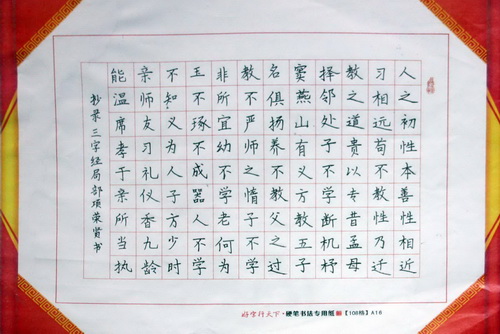 人之初性本善性相近
习相远苟不教性乃迁
教之道贵以专昔孟母
择邻处子不学断机杼
窦燕山有义方教五子
名俱扬养不教父之过
教不严师之惰子不学
非所宜幼不学老何为
玉不琢不成器人不学
不知义为人子方少时
亲师友习礼仪香九龄
能温席孝于亲所当执
抄录三字经局部项荣贵书
好字行天下·硬笔书法专用纸【108格】A16